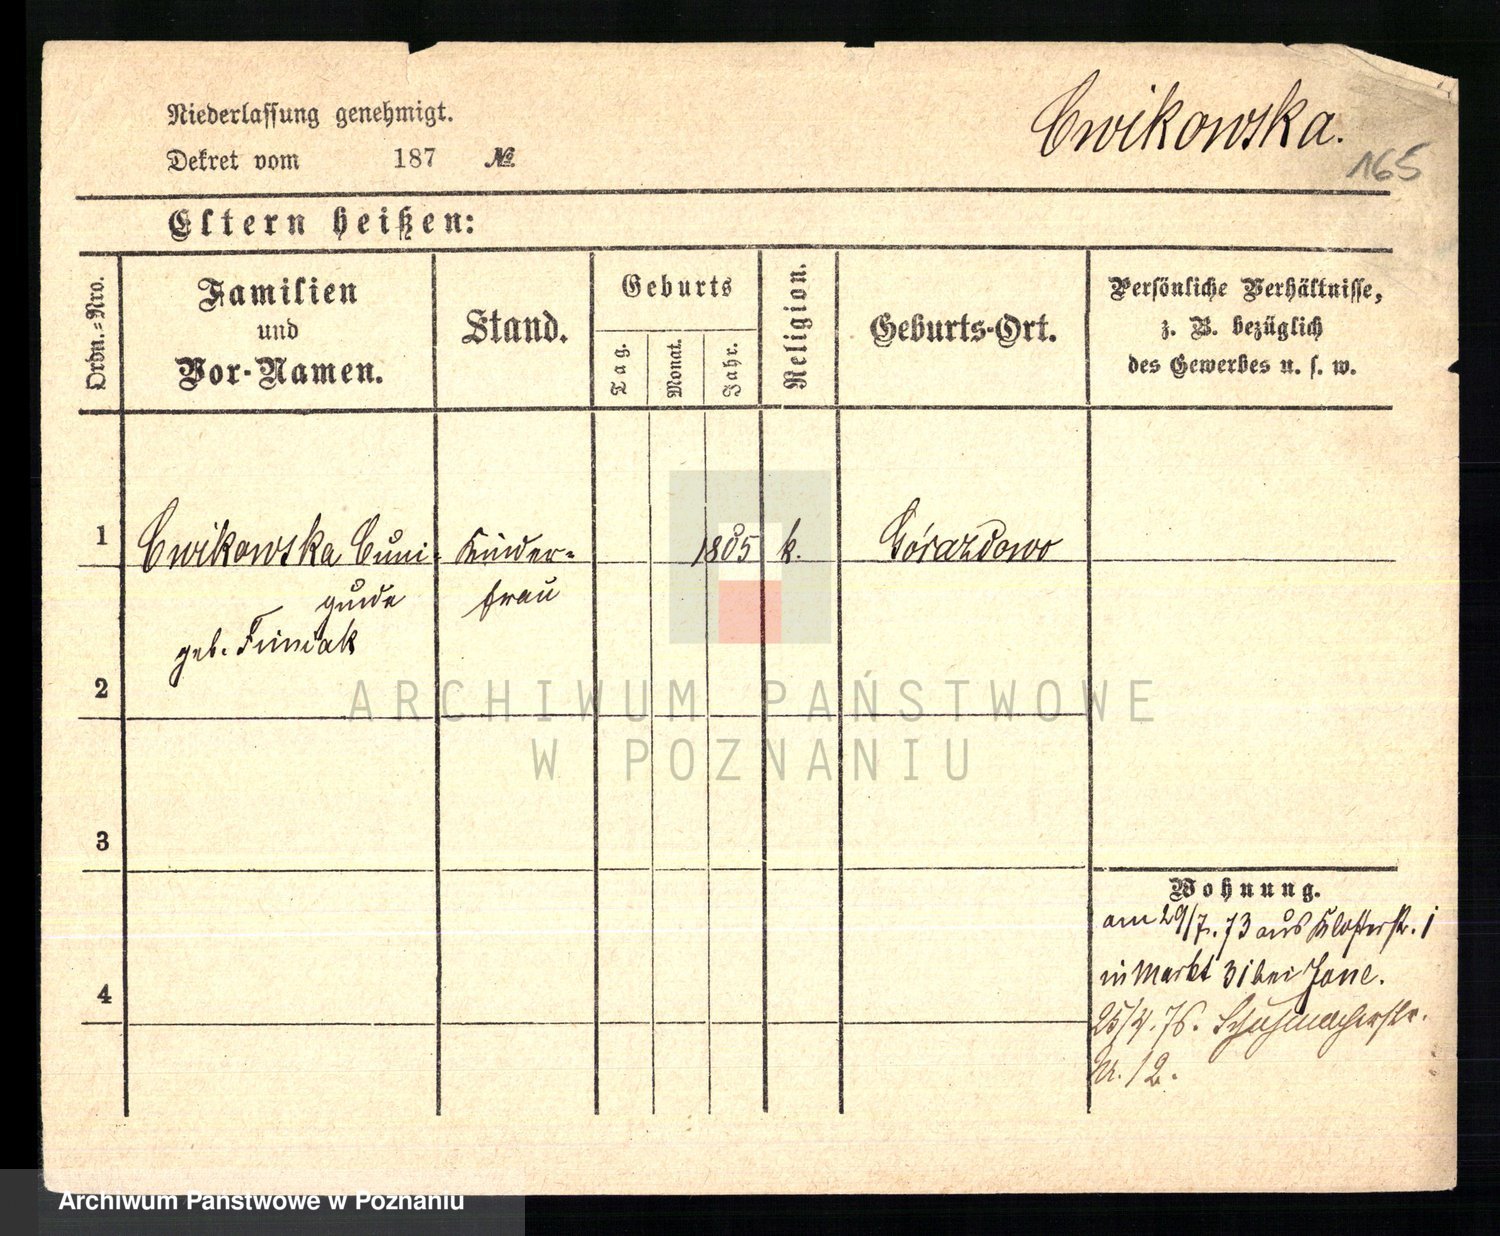 Niederlassung genehmigt.
Dekret vom 187 №
Cwikowska.
165
Eltern heißen:
Ordn.=Nro.
Familien
und
Vor-Namen.
Stand.
Geburts
Tag.
Monat.
Jahr.
Religion.
Geburts-Ort.
Persönliche Verhältnisse,
z. B. bezüglich
des Gewerbes u. s. w.
1
Cwikowska Cuni-
gunde
geb.
Kinder=
frau
1805
k.
Górazdowo
2
3
4
Wohnung.
am 29/7. 73 aus Klosterstr. 1
in Markt 31 bei
25/4. 76. Schuhmacherstr.
Nr. 12.
ARCHIWUM PAŃSTWOWE
W POZNANIU
Archiwum Państwowe w Poznaniu